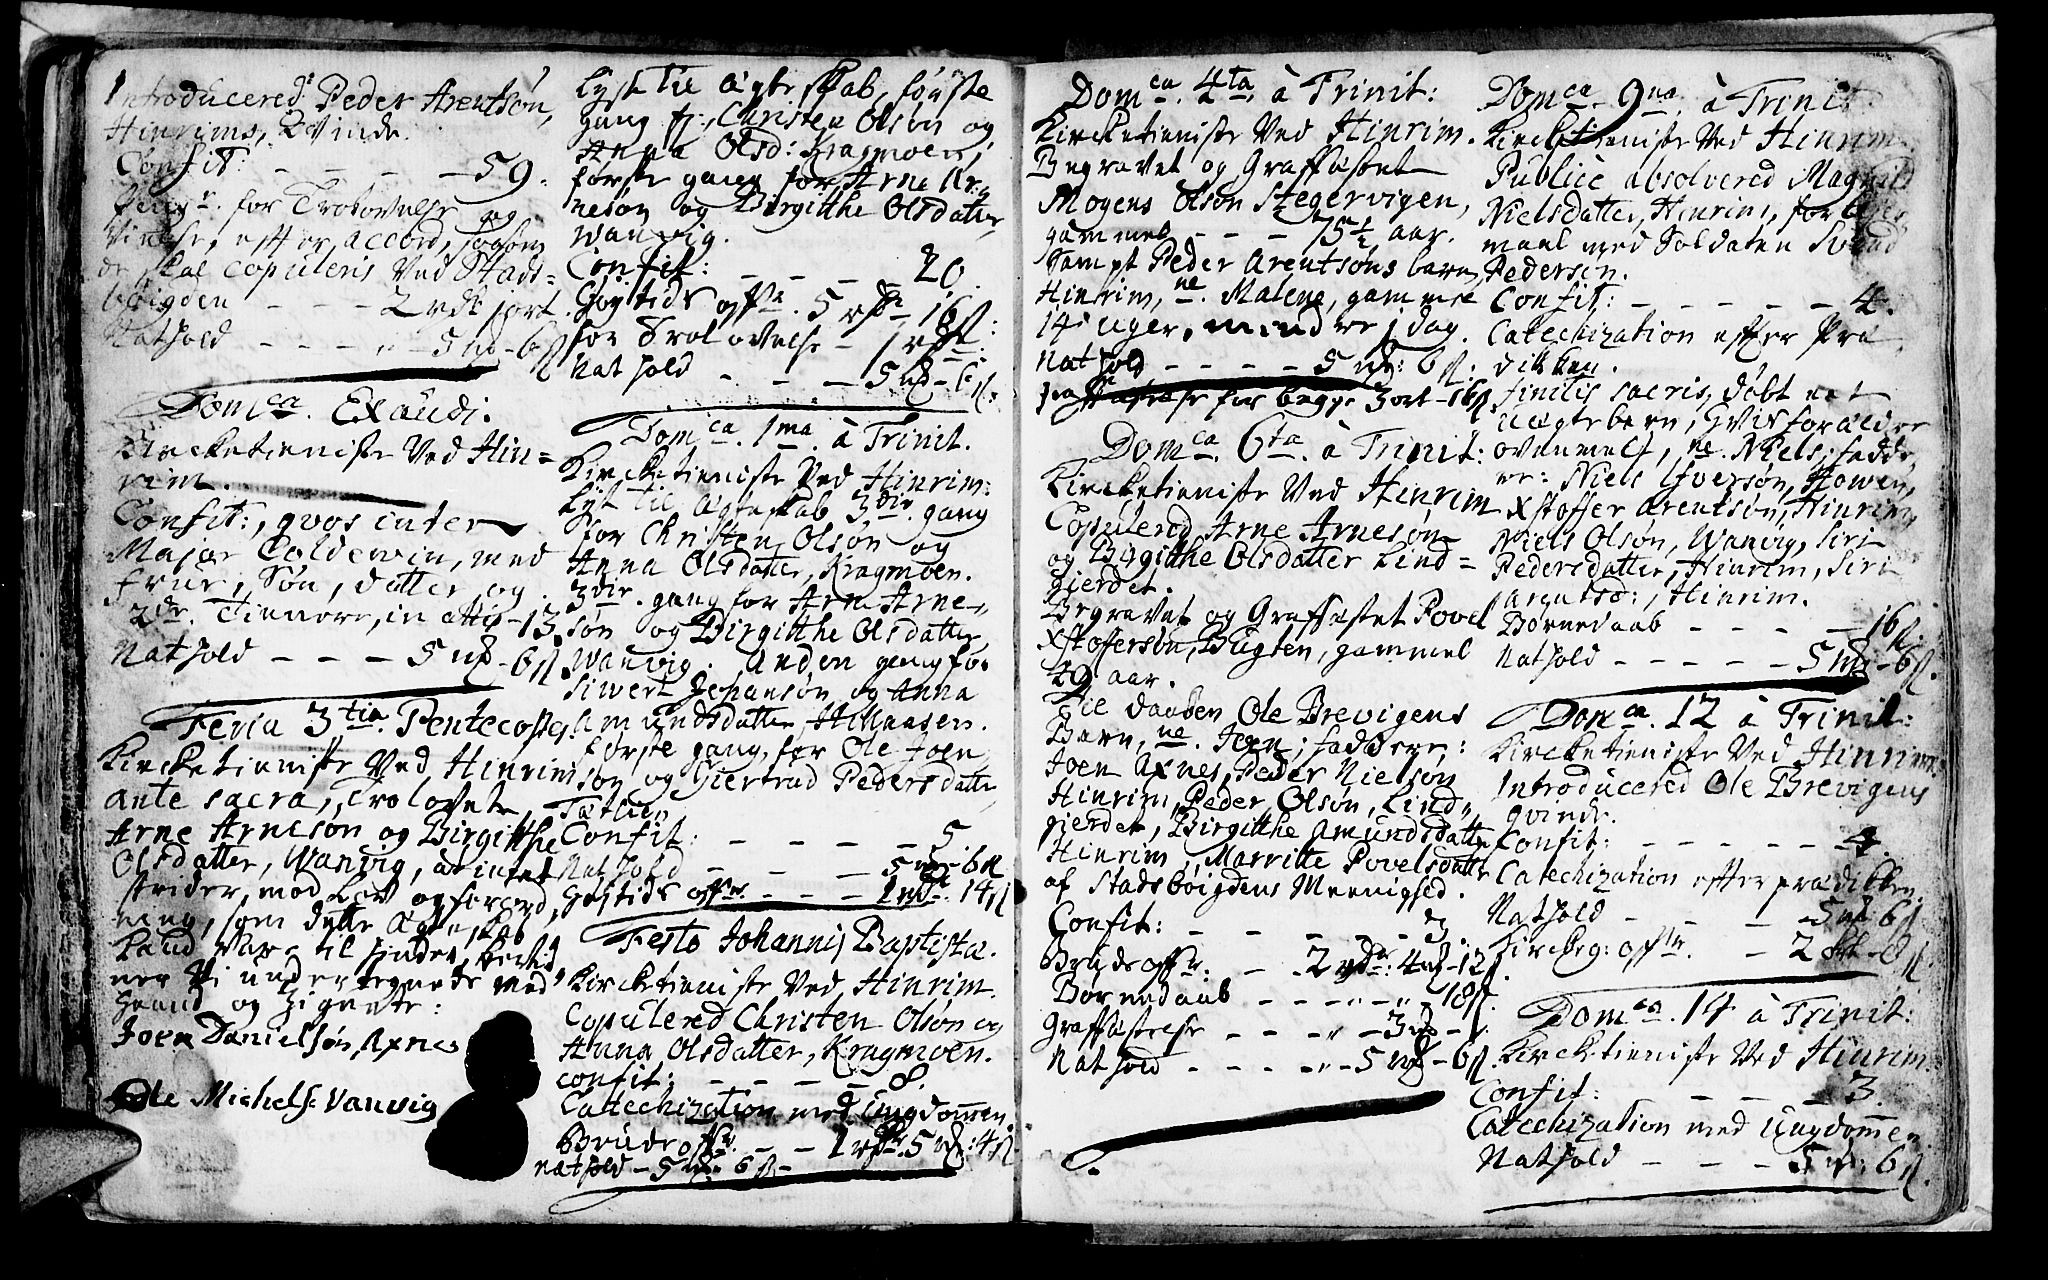 Introducered Peder Arentsøn,
Hinrims, Qvinde.
Confit: - - - - 59.
for Trolovelse og
Vielse, efter accord, saasom
de skal copuleris Ved Stads=
bøigden - - - 2 rdr sort.
Nathold - - - „ - 5 mk - 6 s
Domca. Exaudi:
Kircketieniste Ved Hin=
rim.
Confit:, qvos inter
Major Coldewin, med
Frue, Søn, datter, og
2de. Tienere, in alis - 13.
Nathold - - - 5 mk - 6 s.
Feria 3tia. Pentecostes:
Kircketieniste Ved Hinrim
ante sacra, Trolovet
Arne Arnesøn og Birgitthe
Olsdatter, Wanvig, at intet
strider mod Lov og forord,
ning, som dette Ægteskab
kand være til hinder, bevid
ner Vi undertegnede med
Haand og Zignete:
Joen Danielsøn, Axnes
Ole Michelse Vanvig
Lyst til Ægteskab, første
gang f; Christen Olsøn og
Anna Olsd: Kragmoen;
første gang for Arne Ar„
nesøn og Birgitthe Olsdatter,
Wanvig.
Confit: - - - 20.
Høytids offer. 5 rdr 16 s:
for Trolovelse - 1 rdr.
Nathold - - - 5 mk - 6 s.
Domca. 1ma. à Trinit.
Kircketieniste Ved Hinrim:
Lyst til Ægteskab 3die. gang
for Christen Olsøn og
Anna Olsdatter, Kragmoen.
3die. gang for Arne Arne„
søn og Birgitthe Olsdatter
Wanvig. Anden gang for
Siwert Johansøn og Anna
Amundsdatter
første gang, for Ole Joen
søn og Giertrud Pedersdatter,
Confit: - - - - 5.
Nathold - - - 5 mk - 6 s
Høytids offer - - - 1 mk. 14 s
Festo Johannis Baptista.
Kircketieniste Ved Hinrim.
Copulered Christen Olsøn og
Anna Olsdatter, Kragmoen.
confit: - - - - 8.
Catechization med Ungdommen
Brude offer - - 1 rdr. 5 mk: 4 s
Nathold - 5 mk 6 s -
Domca. 4ta. à Trinit:
Kircketieniste Ved Hinrim.
Begravet og Graffæstet
Mogens Olsøn Stegervigen,
gammel - - - 75 1/2 aar.
Sampt Peder Arentsøns barn,
Hinrim, ne. Malene, gammel
14 uger, mindre j dag.
Nathold - - - - 5 mk: 6 s.
for begge 3 ort - 16 s
Domca. 6ta. à Trinit:
Kircketieniste Ved Hinrim
Copulered Arne Arnesøn
og Birgitthe Olsdatter Lind=
gierdet.
Begravet og Graffæstet Povel
Xstoffersøn, Bugten, gammel
49 aar.
Til daaben Ole Brevigens
Barn, ne. Joen; faddere;:
Joen Axnes, Peder Nielsøn
Hinrim, Peder Olsøn, Lind„
gierdet, Birgitthe Amundsdatter
Hinrim, Marritte Povelsdatter
af Stadsbøigdens Meenighed.
Confit: - - - - - ej
Brude offer. - - 2 rdr: 4 mk - 12 s.
Børnedaab - - - „ - „ - 18 s.
Graffæstelse - - - „ - 3 mk - „.
Nathold - - - - „ - 5 mk - 6 s.
Domca. 9na. à Trinit:
Kircketieniste Ved Hinrim
Publice absolvered Magnild
Nielsdatter, Hinrim, for Leier
maal med Soldaten Svend
Pedersen.
Confit: - - - - - 4.
Catechization efter Præ
diken.
finitis sacris, døbt et
uægte barn, hvis forældre
ovenmelt, ne. Niels; fadde,
re: Niels Iversøn, Howen,
Xstoffer Arentsøn, Hinrim,
Niels Olsøn, Wanvig, Siri
Pedersdatter, Hinrim, Siri
Arentsd:, Hinrim.
Børnedaab - - - - 16 s.
Nathold - - - - - 5 mk - 6 s.
Domca. 12 à Trinit:
Kircketieniste Ved Hinrim.
Introducered Ole Brevigens
qvinde.
Confit: - - - - - 4
Catechization efter prædiken
Nathold - - - - 5 mk 6 s
Kirckeg: offer - 2 ort - 8 s.
Domca. 14 à Trinit:
Kircketieniste Ved Hinrim
Confit: - - - - 3.
Catechization med Ungdommen
Nathold - - - 5 mk: 6 s.